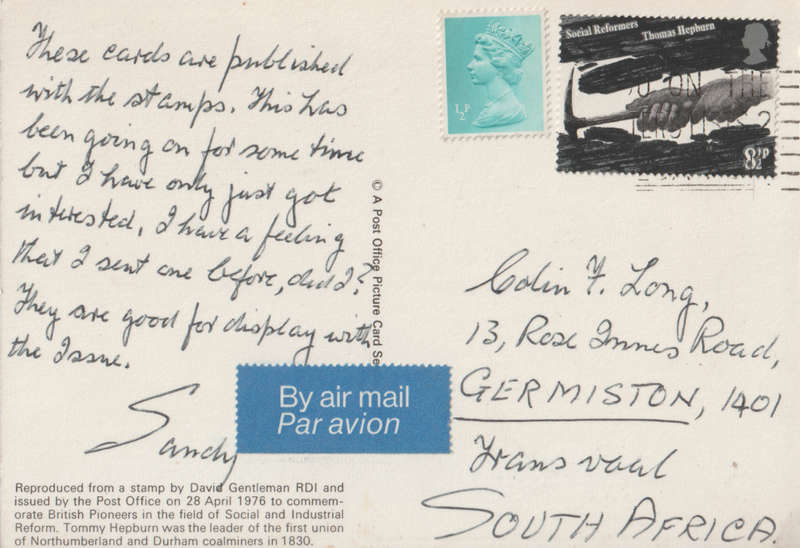 These cards are published
with the stamps. This has
been going on for some time
but I have only just got
interested, I have a feeling
that I sent one before, did I?
They are good for display with
the Issue.
Sandy
Reproduced from a stamp by David Gentleman RDI and
issued by the Post Office on 28 April 1976 to commem-
orate British Pioneers in the field of Social and Industrial
Reform. Tommy Hepburn was the leader of the first union
of Northumberland and Durham coalminers in 1830.
© A Post Office Picture Card Se
By air mail
Par avion
½P
Social Reformers Thomas Hepburn
ON THE
8½P
Colin F. Long,
13, Rose Innes Road,
GERMISTON, 1401
Transvaal
SOUTH AFRICA.